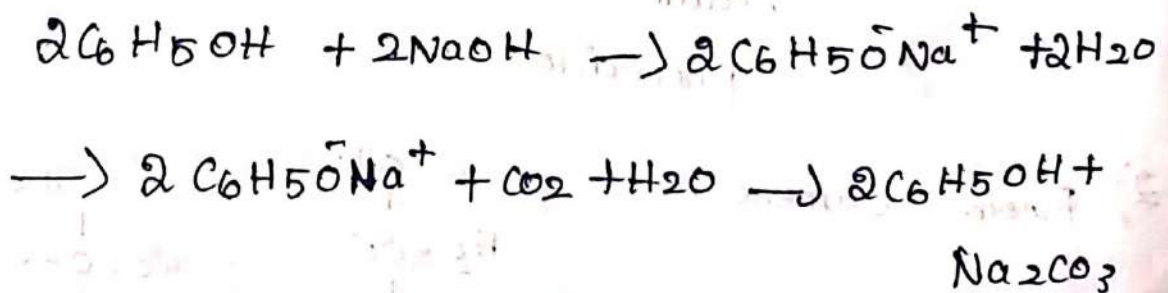 2C6H5OH + 2NaOH → 2C6H5ŌNa⁺ + 2H2O
→ 2C6H5ŌNa⁺ + CO2 + H2O → 2C6H5OH +
Na2CO3